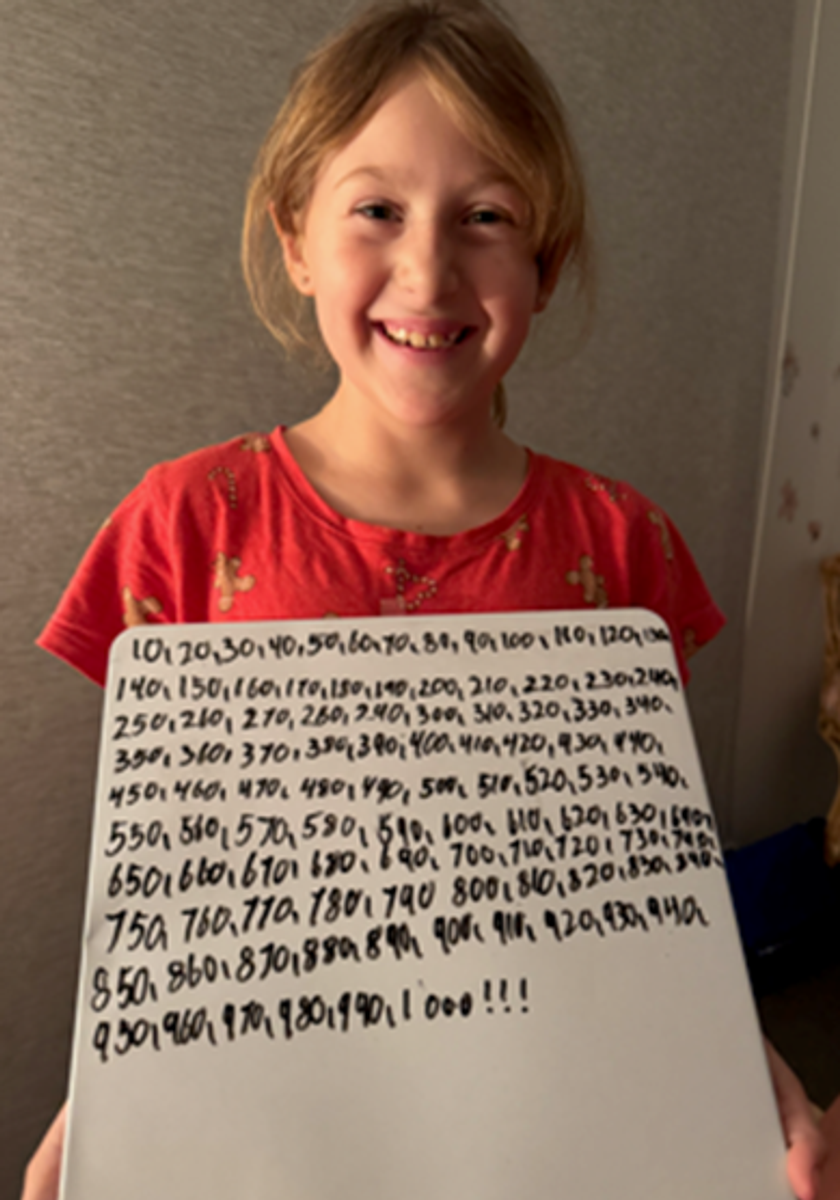 10, 20, 30, 40, 50, 60, 70, 80, 90, 100, 110, 120, 130
140, 150, 160, 170, 180, 190, 200, 210, 220, 230, 240,
250, 260, 270, 260, 290, 300, 310, 320, 330, 340,
350, 360, 370, 380, 390, 400, 410, 420, 430, 440,
450, 460, 470, 480, 490, 500, 510, 520, 530, 540,
550, 560, 570, 580, 590, 600, 610, 620, 630, 640,
650, 660, 670, 680, 690, 700, 710, 720, 730, 740,
750, 760, 770, 780, 790 800, 810, 820, 830, 840,
850, 860, 870, 880, 890, 900, 910, 920, 930, 940,
950, 960, 970, 980, 990, 1000!!!